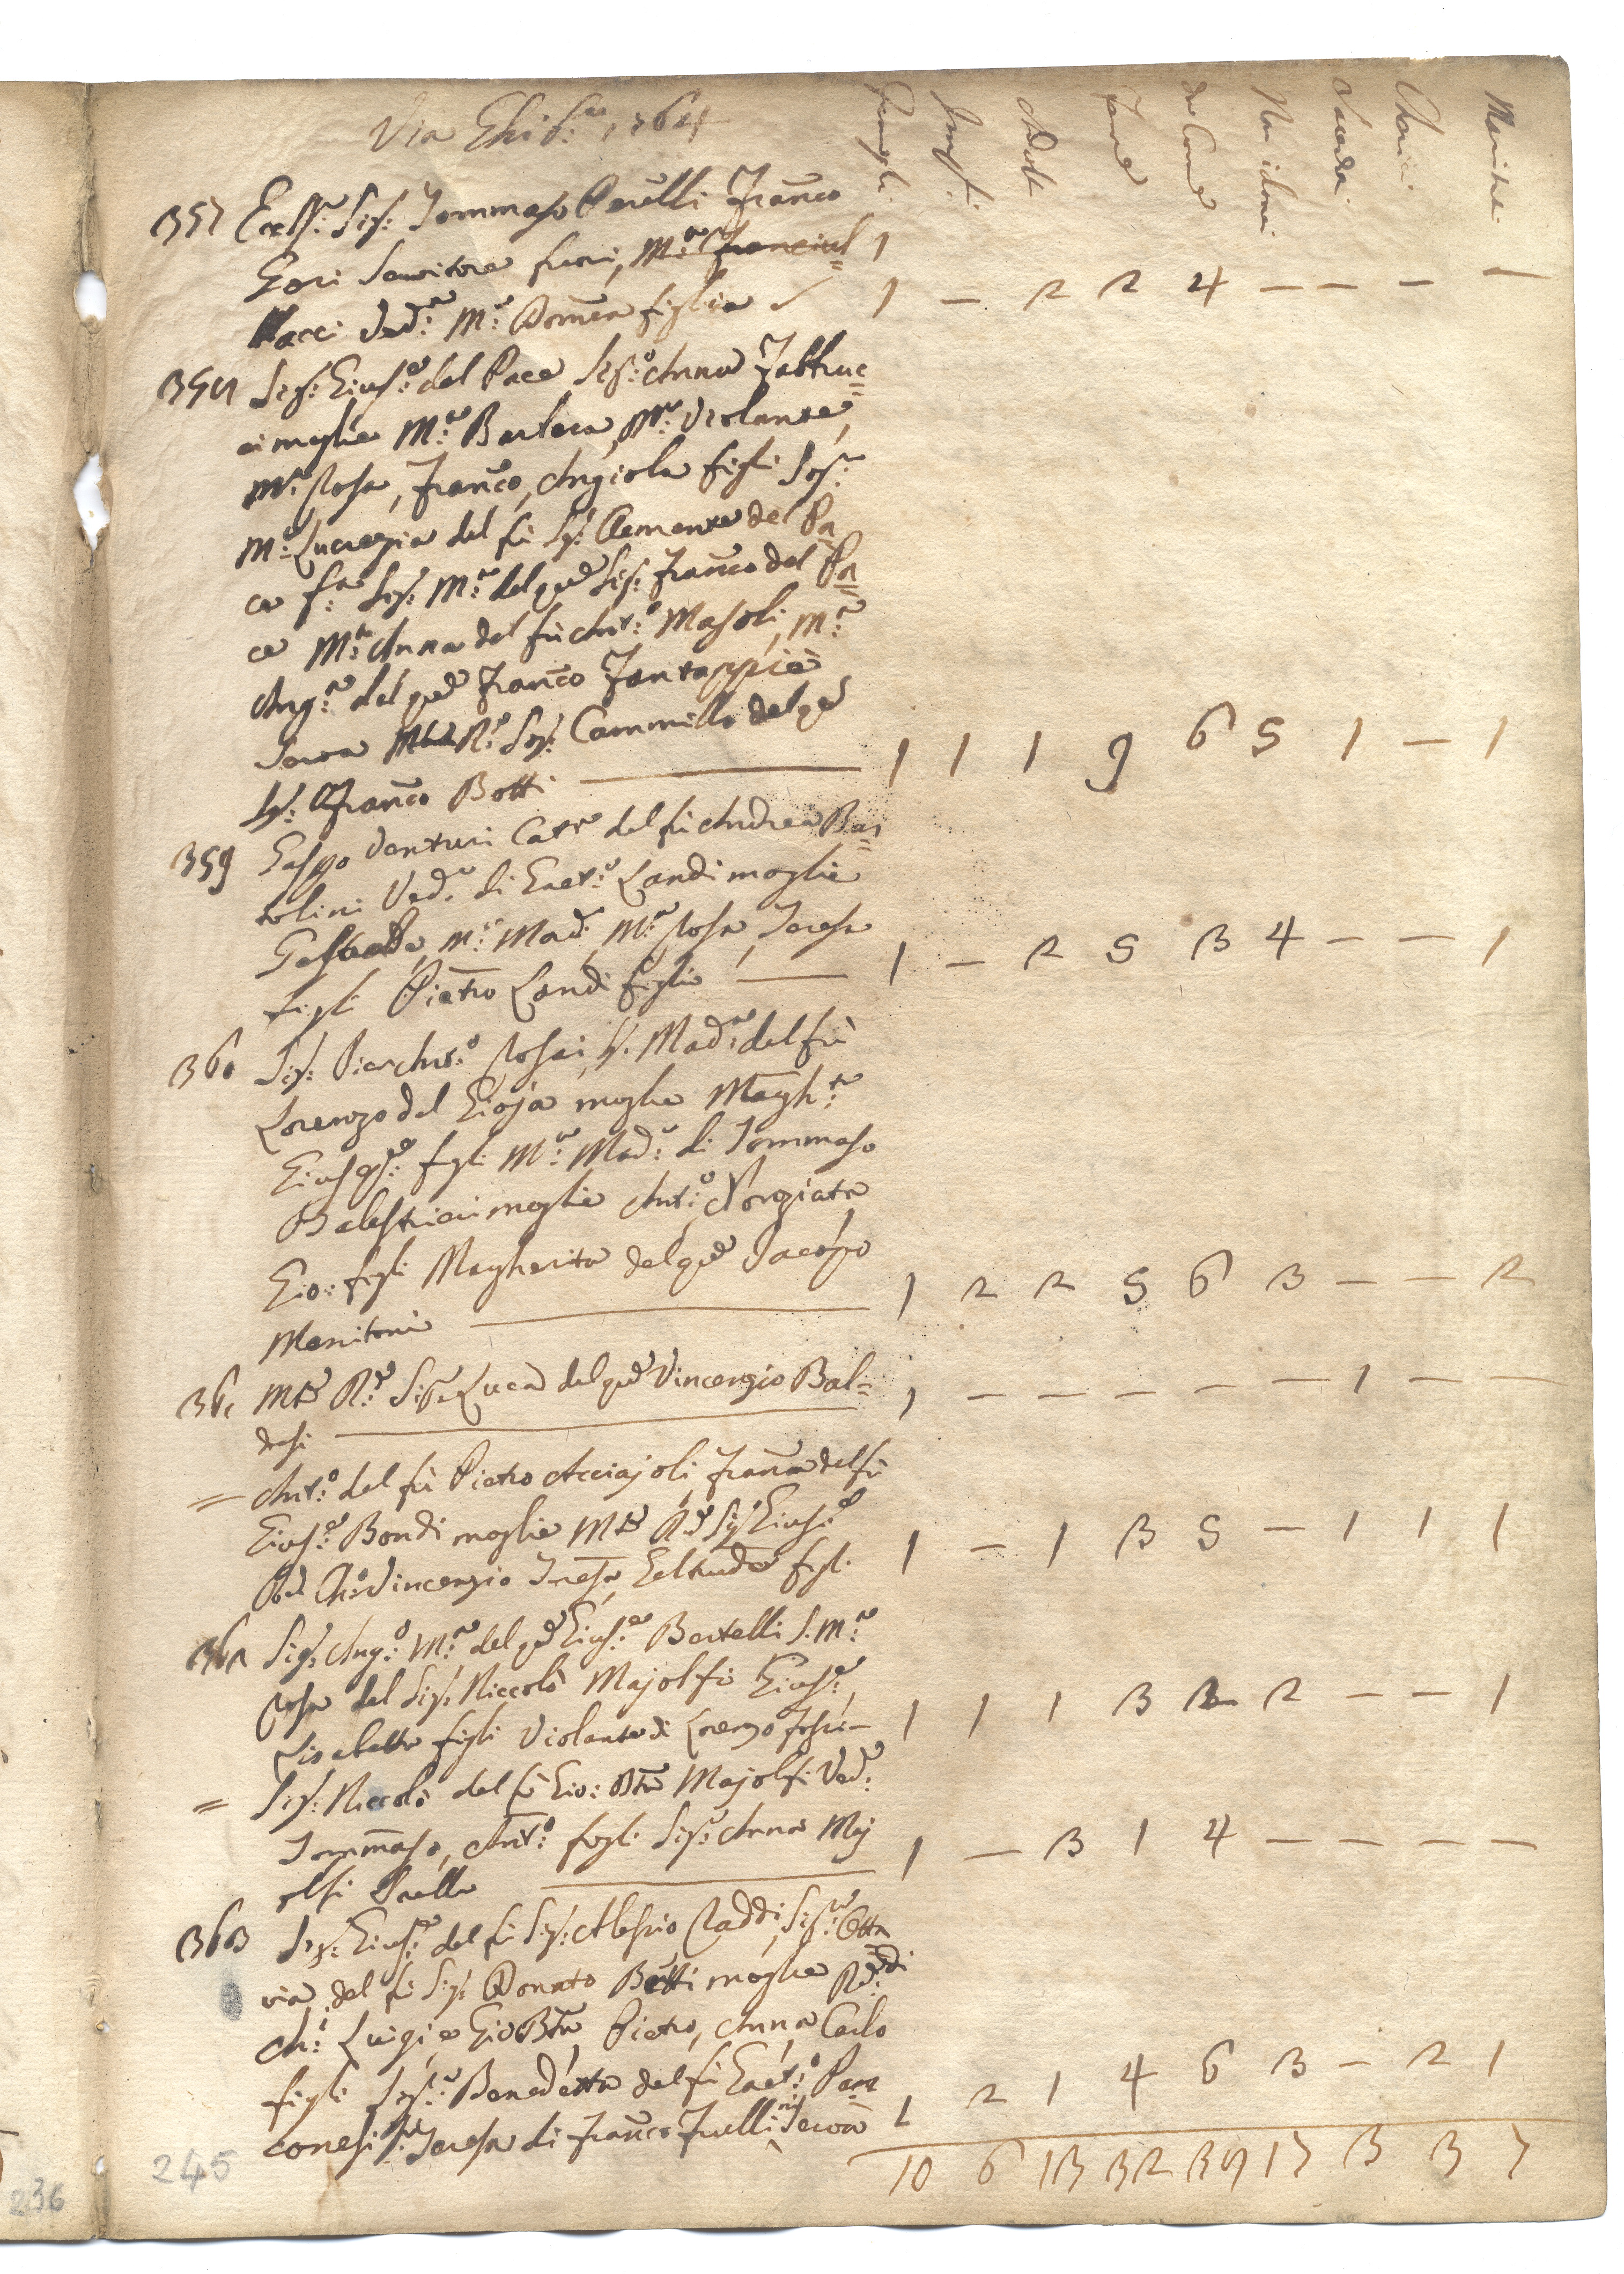 Via Ghib:na 1764
Famigli. Impf. Adulti Femne da Com. Non idonei Sacerdoti Cherici Maritati
357 Eccell:mo Sig: Tommaso Perelli Franco
Gori Servitore fuori, M:a Francius= 1
Nacci Ved:a M:a Domca figlia 1 — 2 2 4 — — — —
358 Sig: Gius:e del Pace Sig:a Anna Fabbruc=
ci moglie M:a Barbera, M:a Violante,
M:a Rosa, Franco, Angiola figli Sig:ra
M:a Lucrezia del fù Sig: Clemente del Pa
ce f:a Sig: M:a del qd Sig: Franco del Pa=
ce M:a Anna del fù Ant:o Masoli, M:a
Ang:a del qd Franco Fantappiè
Serva R:o Sig: Cammillo del qd
Sig: Franco Botti 1 1 1 9 6 5 1 — 1
359 Gaspo Venturi Catt:a del fù Andrea Bar=
tolini Ved:a di Gaet:o Landi moglie
M:a Mad:a M:a Rosa, Teresa
figli Pietro Landi figlio 1 — 2 5 3 4 — — 1
360 Sig: Pier Ant:o Rosai, Sig: Mad:a del fù
Lorenzo del Gioja moglie Margh:ta
Gius:e figli M:a Mad:a di Tommaso
Balestrieri moglie Ant:o, Nonziata
Gio: figli Margherita del qd Jacopo
Manitoni 1 2 2 5 6 3 — — 2
361 Mto R:do Sig:r Luca del qd Vincenzio Bal= 1 — — — — — 1 — —
desi
= Ant:o del fù Pietro Acciajoli, Franca del fù
Gius:e Bondi moglie Mto R:do Sig: Gius:e
Vincenzio Teresa, Geltruda figli 1 — 1 3 5 — 1 1 1
362 Sig: Ang:o M:a del qd Gius:e Bertelli S. M:a
Rosa del Sig: Niccolò Majolfi Gius:e,
Lisabetta figli Violante di Lorenzo 1 1 1 3 3 2 — — 1
= Sig: Niccolò del fù Gio: Bta Majolfi Ved:o
Tommaso, Ant:o figli Sig:a Anna Maj
olfi Sorella 1 — 3 1 4 — — — —
363 Sig: Gius:e del fù Sig: Alessio Raddi, Sig:ra Otta
via del fù Sig: Donato Betti moglie R:di
Ch:i Luigi e Gio Bta Pietro, Anna Carlo
figli Sig:a Benedetta del fù Gaet:o Pan
conesi Teresa di Franco Frulli Serva 1 2 1 4 6 3 — 2 1
10 6 13 32 38 17 3 3 7
245
236